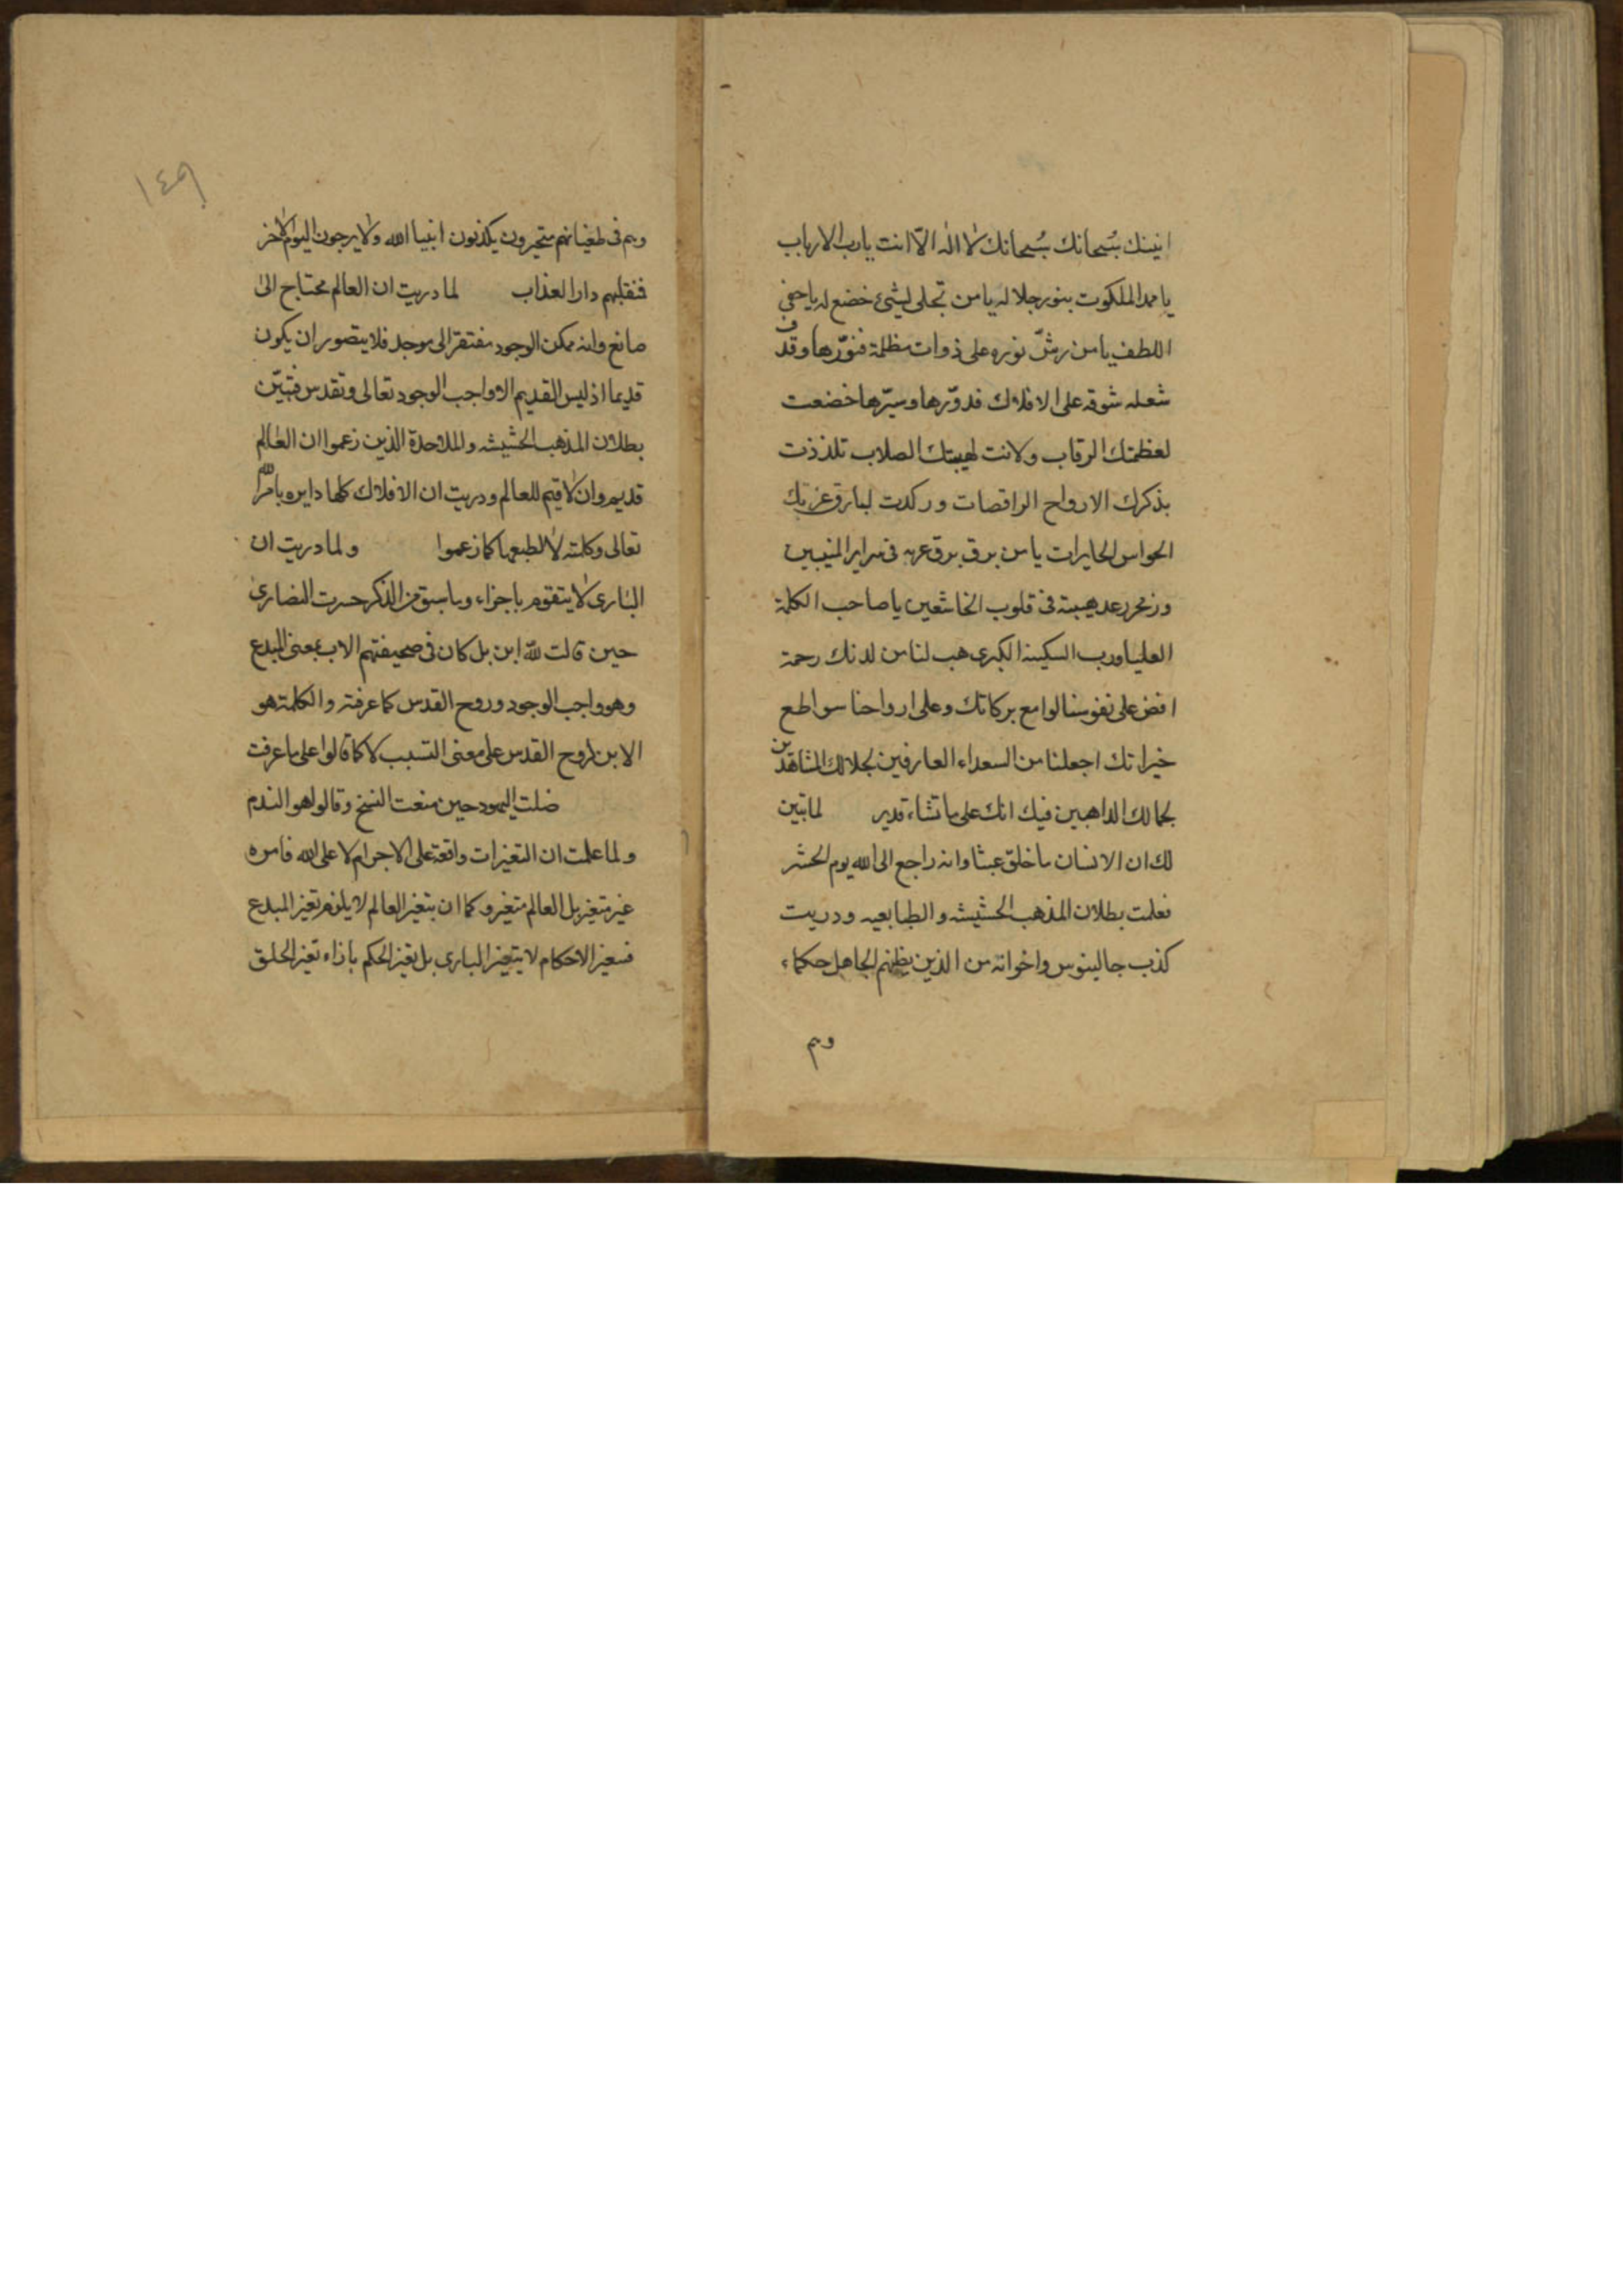 انيتك سُبحانك سُبحانك لا اله الّا انت يا رب الارباب
يا ممد الملكوت بنور جلاله يا من تجلى لشئ خضع له يا خفي
اللطف يا من رشّ نوره على ذوات مظلمة فنوّرها وقذف
شعله شوقه على الافلاك فدوّرها وسيّرها خضعت
لعظمتك الرقاب ولانت لهيبتك الصلاب تلذذت
بذكرك الارواح الراقصات وركدت لبارق عزتك
الحواس الحايرات يا من برق برق عزه فى سراير المنيبين
وزمجر رعد هيبته فى قلوب الخاشعين يا صاحب الكلمة
العليا ورب السكينه الكبرى هب لنا من لدنك رحمة
افض على نفوسنا لوامع بركاتك وعلى ارواحنا سواطع
خيراتك اجعلنا من السعداء العارفين لجلالك المشاهدين
لجمالك الذاهبين فيك انك على ما تشاء قدير لما تبين
لك ان الانسان ما خلق عبثا وانه راجع الى الله يوم الحشر
فعلمت بطلان المذهب الحشيشه والطبايعيه ودريت
كذب جالينوس واخوانه من الذين يظنهم الجاهل حكماء
وهم
١٤٩
وهم فى طغيانهم متحيرون يكذبون انبيا الله ولا يرجون اليوم الاخر
فنقلهم دار العذاب لما دريت ان العالم محتاج الى
صانع وانه ممكن الوجود مفتقر الى موجد فلا يتصور ان يكون
قديما اذ ليس القديم الا واجب الوجود تعالى وتقدس فتبيّن
بطلان المذهب الحشيشه والملاحدة الذين زعموا ان العالم
قديم وان لا قيم للعالم ودريت ان الافلاك كلها دايره بامر الله
تعالى وكلمته لا لطبعها كما زعموا ولما دريت ان
البارى لا يتقوم باجزاء وما سبق من الذكر خسرت النصارى
حين قالت لله ابن بل كان فى صحيفتهم الاب بمعنى المبدع
وهو واجب الوجود وروح القدس كما عرفته والكلمة هو
الابن لروح القدس على معنى التسبب لا كما قالوا على ما عرفت
ضلت اليهود حين منعت النسخ وقالوا هو الندم
ولما علمت ان التغيرات واقعة على الاجرام لا على الله فامره
غير متغير بل العالم متغير وكما ان بتغير العالم لا يلزم تغير المبدع
فبتغير الاحكام لا يتغير البارى بل تغير الحكم بازاء تغير الخلق